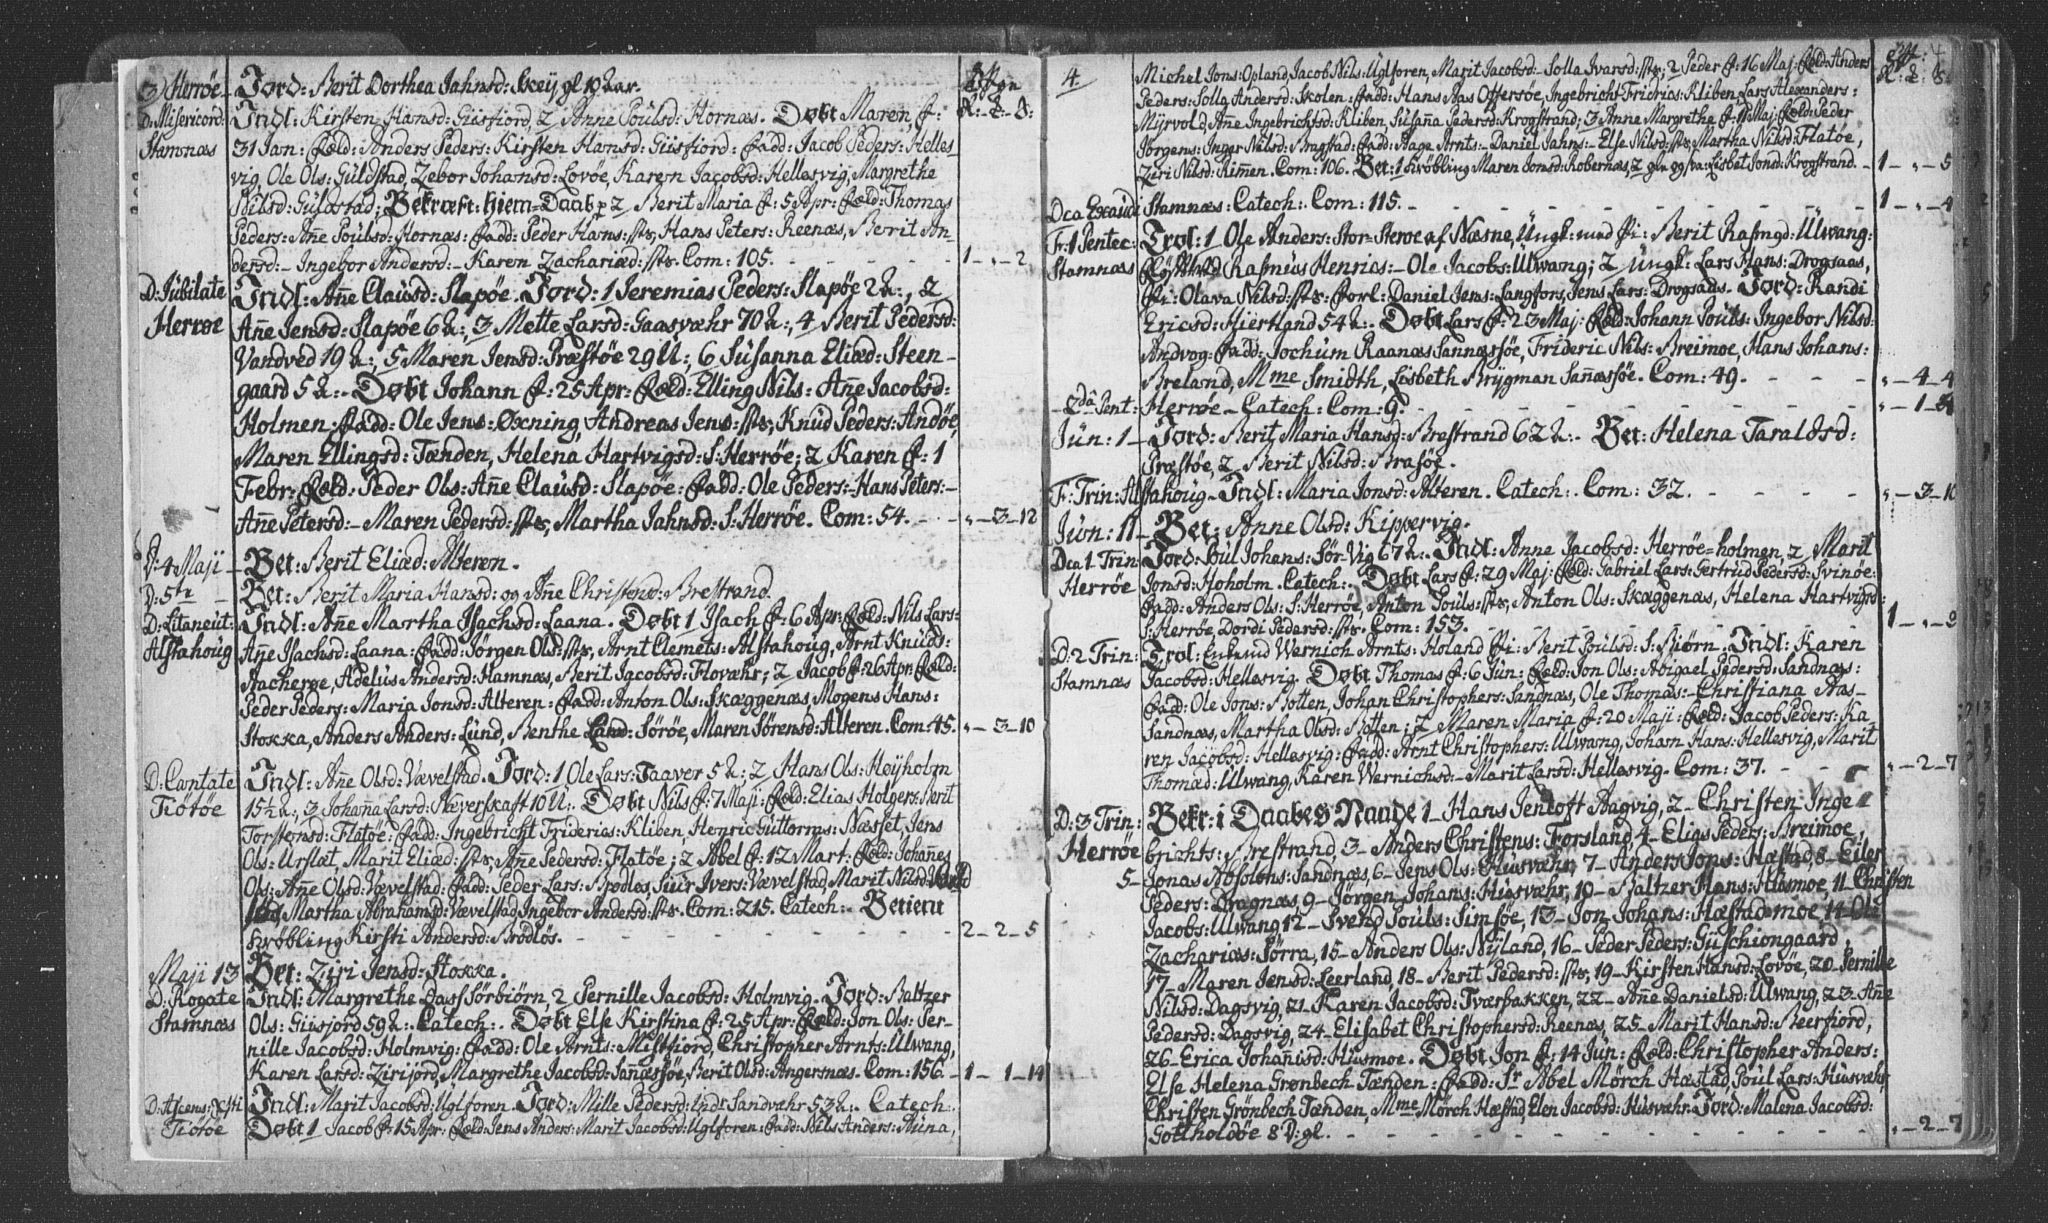 3/ Herrøe Jord: Berit Dorthea Jahnsd: Skeij gl. 10 aar.
D: Misericord: Stamnæs Indl: Kirsten Hansd: Giisfiord, 2 Anne Poulsd: Hornæs. Døbt Maren, f:
31 Jan: Foeld: Anders Peders: Kirsten Hansd: Giisfiord: Fadd: Jacob Peders: Helles-
vig, Ole Ols: Guldstad, Zebor Johansd: Lovøe, Karen Jacobsd: Hellesvig, Margrethe
Nilsd: Guldstad; Bekræft: hjem-Daab 2 Berit Maria f: 5 Apr: Foeld: Thomas
Peders: Añe Poulsd: Hornæs: Fadd: Peder Hans: sts, Hans Peters: Reenæs, Berit An-
dersd:- Ingebor Andersd:- Karen Zachariæd: sts. Com: 105. 1 - „ - 2
D: Jubilate Herrøe Indl: Añe Clausd: Slapøe. Jord: 1 Jeremias Peders: Slapøe 2 A:, 2
Añe Jensd: Slapøe 6 A:, 3 Mette Larsd: Gaasvæhr 70 A:, 4 Berit Pedersd:
Vandved 19 A:, 5 Maren Jensd: Præstøe 29 U:, 6 Susanna Eliæd: Steen-
gaard 5 A:. Døbt Johann f: 25 Apr: Foeld: Elling Nils: Añe Jacobsd:
Holmen: Fadd: Ole Jens: Oxning, Andreas Jens: sts, Knud Peders: Andøe,
Maren Ellingsd: Tænden, Helena Hartvigsd: S: Herrøe; 2 Karen f: 1
Febr: Foeld: Peder Ols: Añe Clausd: Slapøe: Fadd: Ole Peders:- Hans Peters:-
Añe Petersd:- Maren Pedersd: sts, Martha Jahnsd: S: Herrøe. Com: 54. „ - 3 - 12
D: 4 Maji Bet: Berit Eliæd: Alteren.
D: 5te Bet: Berit Maria Hansd: og Añe Christend: Brestrand.
D: Litaneut: Alstahoug Indl: Añe Martha Isachsd: Laana. Døbt 1 Isach f: 6 Apr: Foeld: Nils Lars:
Añe Isachsd: Laana: Fadd: Jørgen Ols: sts, Arnt Clemets: Alstahoug, Arnt Knuds:
Aacherøe, Adelus Andersd: Hamnæs, Berit Jacobsd: Flovæhr; 2 Jacob f: 26 Apr: Foeld:
Peder Peders: Maria Jonsd: Alteren: Fadd: Anton Ols: Skæggenæs, Mogens Hans:
Stokka, Anders Anders: Lund, Benthe Lund: Sørøe, Maren Sørensd: Alteren. Com: 45. „ - 3 - 10
D: Cantate Tiøtøe Indl: Añe Olsd: Vævelstad. Jord: 1 Ole Lars: Taaver 5 A:, 2 Hans Ols: Høyholm
15½ A:, 3 Johañe Larsd: Skæverskaft 10 U:. Døbt Nils f: 7 Maji: Foeld: Elias Holgers: Berit
Torstensd: Flatøe: Fadd: Ingebricht Friderics: Kliben, Henric Guttorms: Næsset, Jens
Ols: Urslæt, Marit Eliæd: sts, Añe Pedersd: Flatøe; 2 Abel f: 12 Mart: Foeld: Johañes
Ols: Añe Olsd: Vævelstad: Fadd: Peder Lars: Brodløs, Siur Ivers: Vævelstad, Marit Nilsd:
Martha Abrahamsd: Vævelstad, Ingebor Andersd: sts. Com: 215. Catech:. Betient
Svøbling Kirsti Andersd: Brødløs. 2 - 2 - 5
Maji 13 Bet: Ziri Jensd: Stokka.
D: Rogate Stamnæs Indl: Margrethe Dass Sørbiørn, 2 Pernille Jacobsd: Holmvig. Jord: Baltzer
Ols: Giisfjord 59 A:. Catech:. Døbt Else Kirstina f: 25 Apr: Foeld: Jon Ols: Per-
nille Jacobsd: Holmvig: Fadd: Ole Arnts: Mistfiord, Christopher Arnts: Ulwang,
Karen Larsd: Zirijord, Margrethe Jacobsd: Sañæsøe, Berit Olsd: Angersnæs. Com: 156. 1 - 1 - 14
D: Ascens: Xsti Tiøtøe Indl: Marit Jacobsd: Uglforen. Jord: Mille Pedersd: Indr Sandvæhr 53 A:. Catech:.
Døbt 1 Jacob f: 15 Apr: Foeld: Jens Anders: Marit Jacobsd: Uglforen: Fadd: Nils Anders: Auna,
4. Michel Jons: Opland, Jacob Nils: Uglforen, Marit Jacobsd:- Solla Ivarsd: sts; 2 Peder f: 16 Maj: Foeld: Anders
Peders: Solla Andersd: Skolen: Fadd: Hans Aas Offersøe, Ingebricht Friderics: Kliben, Lars Alexanders:
Myrvold, Añe Ingebrichtsd: Kliben, Susaña Pedersd: Krogstrand; 3 Anne Margrethe f: 11 Maj: Foeld: Peder
Jørgens: Inger Nilsd: Brugstad: Fadd: Aage Arnts:- Daniel Jahns:- Else Nilsd: sts, Martha Nilsd: Flatøe,
Ziri Nilsd: Rimen. Com: 106. Bet: 1 Svøbling Maren Jonsd: Robernæs, 2 gln og sva: Lisbet Jonsd: Krogstrand. 1 - „ - 5
Dca Exaudi Stamnæs: Catech:. Com: 115. 1 - „ - 4
F: 1 Pentec: Stamnæs Trol: 1 Ole Anders: Stor-Steroe af Næsne, Ungk: med Pi: Berit Rasmd: Ulwang:
Rasmus Henrics:- Ole Jacobs: Ulwang; 2 Ungk: Lars Hans: Drogsaas,
Pi: Olava Nilsd: sts: Forl: Daniel Jens: Langfors, Jens Lars: Drogsaas. Jord: Randi
Ericsd: Hiertland 54 A:. Døbt Lars f: 23 Maj: Foeld: Johann Pouls: Ingebor Nilsd:
Andvog: Fadd: Jochum Raanæs Sannæsøe, Frideric Nils: Breimoe, Hans Johans:
Breland, Mme Smidth, Lisbeth Brygman Sañæsøe. Com: 49. „ - 4 - 4
2da Pent: Herrøe Catech: Com: 9. „ - 1 - 8
Jun: 1 Jord: Berit Maria Hansd: Brestrand 62 A:. Bet: Helena Taraldsd:
Præstøe, 2 Berit Nilsd: Brasøe.
F: Trin: Alstahoug Indl: Maria Jonsd: Alteren. Catech:. Com: 32. „ - 3 - 10
Jun: 11 Bet: Anne Olsd: Kippervig.
Dca 1 Trin: Herrøe Jord: Poul Johans: Sør-Vig 67 A:. Indl: Anne Jacobsd: Herrøe-holmen, 2 Marit
Jonsd: Hoholm. Catech:. Døbt Lars f: 29 Maj: Foeld: Gabriel Lars: Gertrud Pedersd: Svinøe:
Fadd: Anders Ols: S: Herrøe, Anton Pouls: sts, Anton Ols: Skæggenæs, Helena Hartvigsd:
S: Herrøe, Dordi Pedersd: sts. Com: 153. 1 - „ - 2
D: 2 Trin: Stamnæs Trol: Enkmd Wernich Arnts: Holand Pi: Berit Poulsd: S: Biørn. Indl: Karen
Jacobsd: Hellesvig. Døbt Thomas f: 6 Jun: Foeld: Jon Ols: Abigael Pedersd: Sandnæs:
Fadd: Ole Jons: Botten, Johan Christophers: Sandnæs, Ole Thomas:- Christiana Aas-
Sandnæs, Martha Olsd: Botten; 2 Maren Maria f: 20 Maji: Foeld: Jacob Peders: Ka-
ren Jacobsd: Hellesvig: Fadd: Arnt Christophers: Ulwang, Johañ Hans: Hellesvig, Marit
Thomæd: Ulwang, Karen Wernichsd:- Marit Larsd: Hellesvig. Com: 37. „ - 2 - 7
D: 3 Trin: Herrøe Bekr: i Daabes Naade 1 - Hans Jentoft Aagvig, 2 - Christen Inge
brichts: Brestrand, 3 - Anders Christens: Forsland, 4 - Elias Peders: Breimoe,
5 - Jonas Absolons: Sandnæs, 6 - Jens Ols: Husvæhr, 7 - Anders Jons: Hæstad, 8 - Eiler
Peders: Dragnæs, 9 - Jørgen Johans: Husvæhr, 10 - Baltzer Hans: Husmoe, 11 Christen
Jacobs: Ulwang 12 - Svend Pouls: Simsøe, 13 - Jon Johans: Hæstad moe, 14 Ole
Zacharias: Sørra, 15 - Anders Ols: Nyland, 16 - Peder Peders: Guschiongaard,
17 - Maren Jensd: Leerland, 18 - Berit Pedersd: sts, 19 - Kirsten Hansd: Lovøe, 20 - Pernille
Nilsd: Dagsvig, 21 - Karen Jacobsd: Tværbakken, 22 - Añe Danielsd: Ulwang, 23. Añe
Pedersd: Dagsvig, 24. Elisabet Christophersd: Reenæs, 25 - Marit Hansd: Beerfiord,
26 - Erica Johanisd: Husmoe. Døbt Jon f: 14 Jun: Foeld: Christopher Anders:
Else Helena Grønbech Tænden: Fadd: Sr Abel Mörch Hæstad, Poul Lars: Husvæhr,
Christen Grönbech Tænden, Mme Mörch Hæstad, Elen Jacobsd: Husvæhr. Jord: Malena Jacobsd:
Gottholdøe 8 D: gl. „ - 2 - 7